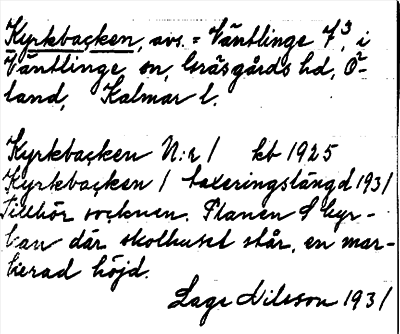 Kyrkbacken, avs. = Väntlinge 7³, i
Väntlinge sn, Gräsgårds hd, Ö-
land, Kalmar l.
Kyrkbacken N:r 1 kb 1925
Kyrkbacken 1 taxeringslängd 1931
Tillhör socknen. Planen f kyr-
kan där skolhuset står, en mar-
kerad höjd.
Lage Nilsson 1931